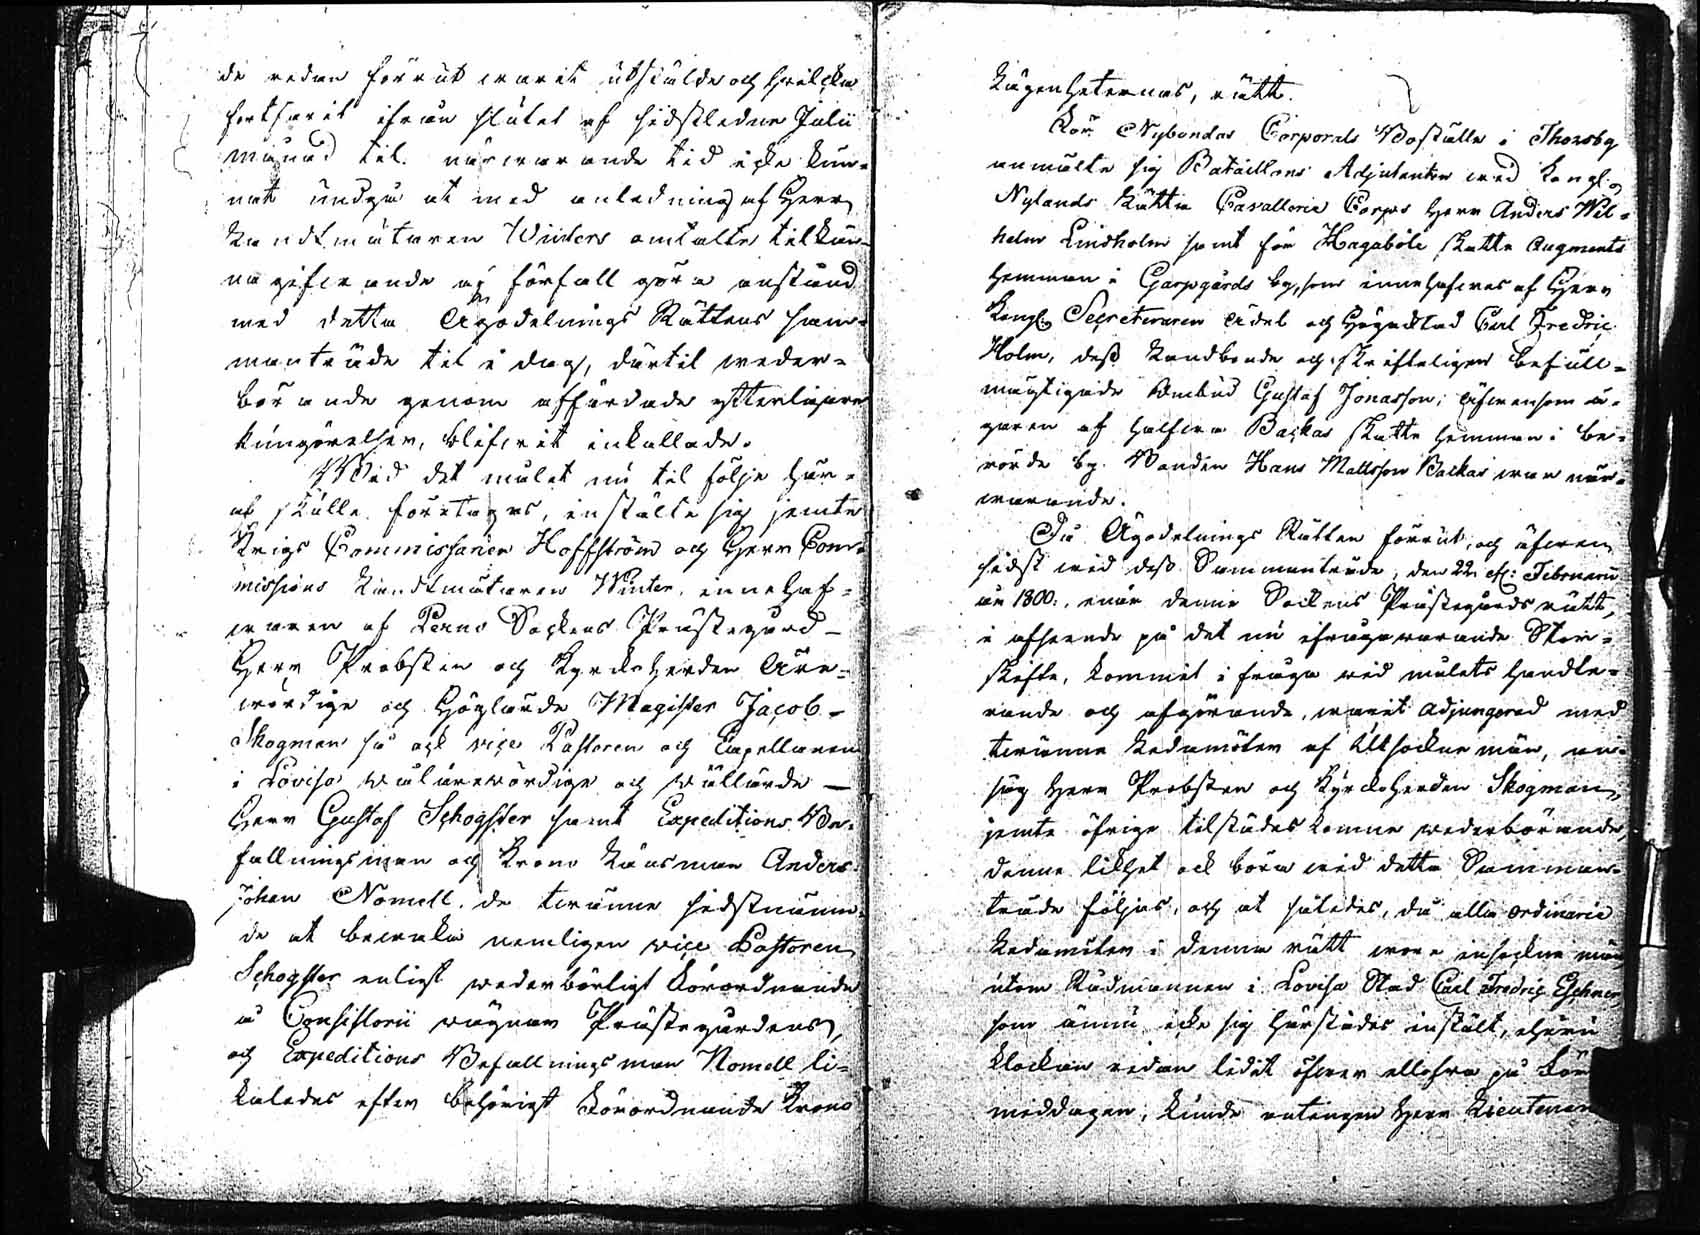 de redan förrut warit utstälde och hwilcka
fortfarit ifrån slutet af sidstledne Julii
månad til närwarande tid icke kun-
nat undgå at med anledning af Herr
Landtmätaren Winters omtalte tilkän-
nagifwande af förfall göra anstånd
med detta Ägodelnings Rättens sam-
manträde til i dag, därtil weder-
börande genom affärdade ytterligare
kungörelser, blifwit inkallade.
Wid det målet nu til följe här-
af skulle företagas, instälte sig jemte
Krigs Commissarien Hoffström och Herr Com-
missions Landtmätaren Winter, innehaf-
waren af Perno Sockens Prästegård
Herr Probsten och Kyrkoherden Äre-
wördige och Höglärde Magister Jacob
Skogman så ock vice Pastoren och Capellanen
i Lovisa wälärewördige och wällärde
Herr Gustaf Schogster samt Expeditions Be-
fallningsman och Krono Länsman Anders
Johan Nomell, de twänne sidstnämn-
de at bewaka nemligen vice Pastoren
Schogster enligt wederbörligt förordnande
å Consistorii wägnar Prästegårdens,
och Expeditions Befallningsman Nomell li-
kaledes efter behörigt förordnande Krono
Lägenheternas, rätt.
För Nybondas Corporals Boställe i Thorsby
anmälte sig Bataillons Adjutanten wid Kongl.
Nylands Lätta Cavallerie Corps Herr Anders Wil-
helm Lindholm samt för Hagaböle skatte Augments
Hemman i Garpgårds by, som innehafwes af Herr
Kongl. Secreteraren Ädel och Högacktad Carl Fredric
Holm, dess Landbonde och skrifteligen befull-
mägtigade Ombud Gustaf Jonasson; äfwensom ä-
garen af halfwa Backas skatte hemman i be-
rörde by Bonden Hans Mattsson Backas war när-
warande.
Då Ägodelnings Rätten förrut, och äfwen
sidst wid dess Sammanträde, den 22 Februarii
år 1800, enär denne Sockens Prästegårds rätt,
i afseende på det nu ifrågawarande Stor-
skifte, kommit i fråga wid målets handte-
rande och afgörande, warit adjungerad med
twänne Ledamöter af Utsockne män, an-
såg Herr Probsten och Kyrckoherden Skogman,
jemte öfrige tilstädes komne wederbörande
denne likhet ock böra wid detta Samman-
träde följas, och at således, då alla ordinarie
Ledamöter i denna rätt woro insockne män
utom Rådmannen i Lovisa Stad Carl Fredric Eschner
som ännu icke sig härstädes instält, ehuru
Klockan redan lidit öfwer ellofwa på för
middagen, kunde antingen Herr Lieutenan